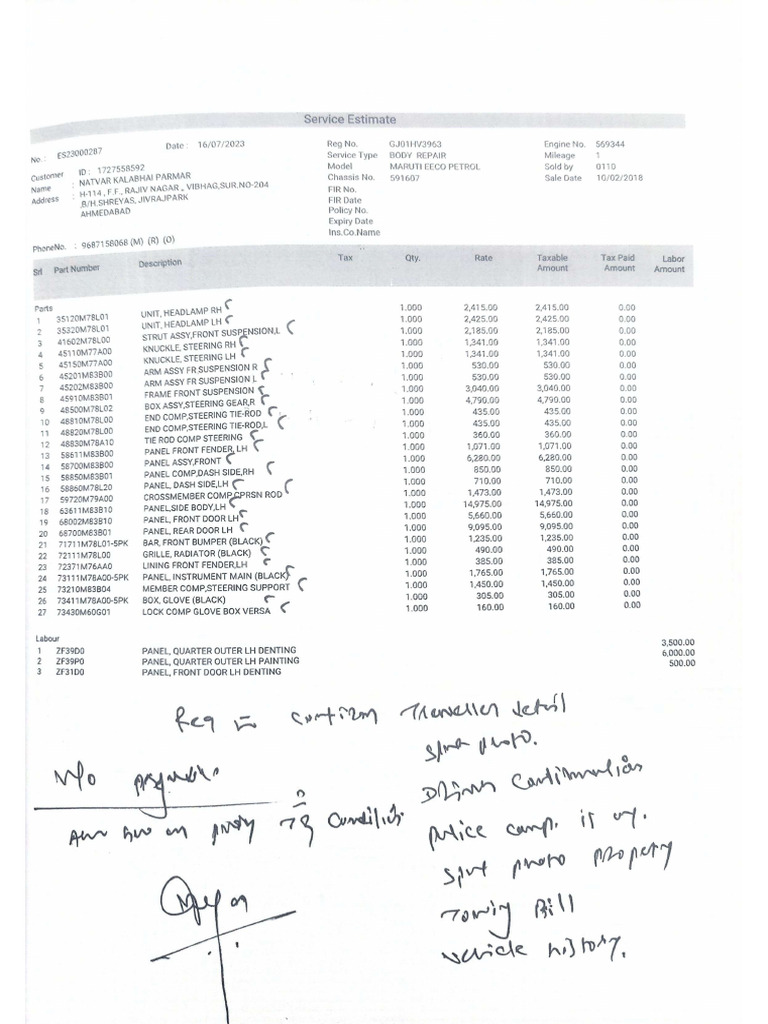 Service Estimate
No.: ES23000287 Date: 16/07/2023
Customer ID: 1727558592
Name : NATVAR KALABHAI PARMAR
Address : H-114, F.F., RAJIV NAGAR, VIBHAG,SUR.NO-204
,B/H.SHREYAS, JIVRAJPARK
AHMEDABAD
PhoneNo. : 9687158068 (M) (R) (O)
Reg No. GJ01HV3963
Service Type BODY REPAIR
Model MARUTI EECO PETROL
Chassis No. 591607
FIR No.
FIR Date
Policy No.
Expiry Date
Ins.Co.Name
Engine No. 569344
Mileage 1
Sold by 0110
Sale Date 10/02/2018
Srl Part Number Description Tax Qty. Rate Taxable Amount Tax Paid Amount Labor Amount
Parts
1 35120M78L01 UNIT, HEADLAMP RH 1.000 2,415.00 2,415.00 0.00
2 35320M78L01 UNIT, HEADLAMP LH 1.000 2,425.00 2,425.00 0.00
3 41602M78L00 STRUT ASSY,FRONT SUSPENSION,L 1.000 2,185.00 2,185.00 0.00
4 45110M77A00 KNUCKLE, STEERING RH 1.000 1,341.00 1,341.00 0.00
5 45150M77A00 KNUCKLE, STEERING LH 1.000 1,341.00 1,341.00 0.00
6 45201M83B00 ARM ASSY FR SUSPENSION R 1.000 530.00 530.00 0.00
7 45202M83B00 ARM ASSY FR SUSPENSION L 1.000 530.00 530.00 0.00
8 45910M83B01 FRAME FRONT SUSPENSION 1.000 3,040.00 3,040.00 0.00
9 48500M78L02 BOX ASSY,STEERING GEAR,R 1.000 4,790.00 4,790.00 0.00
10 48810M78L00 END COMP,STEERING TIE-ROD 1.000 435.00 435.00 0.00
11 48820M78L00 END COMP,STEERING TIE-ROD,L 1.000 435.00 435.00 0.00
12 48830M78A10 TIE ROD COMP STEERING 1.000 360.00 360.00 0.00
13 58611M83B00 PANEL FRONT FENDER, LH 1.000 1,071.00 1,071.00 0.00
14 58700M83B00 PANEL ASSY,FRONT 1.000 6,280.00 6,280.00 0.00
15 58850M83B01 PANEL COMP,DASH SIDE,RH 1.000 850.00 850.00 0.00
16 58860M78L20 PANEL, DASH SIDE,LH 1.000 710.00 710.00 0.00
17 59720M79A00 CROSSMEMBER COMP,CPRSN ROD 1.000 1,473.00 1,473.00 0.00
18 63611M83B10 PANEL,SIDE BODY,LH 1.000 14,975.00 14,975.00 0.00
19 68002M83B10 PANEL, FRONT DOOR LH 1.000 5,660.00 5,660.00 0.00
20 68700M83B01 PANEL, REAR DOOR LH 1.000 9,095.00 9,095.00 0.00
21 71711M78L01-5PK BAR, FRONT BUMPER (BLACK) 1.000 1,235.00 1,235.00 0.00
22 72111M78L00 GRILLE, RADIATOR (BLACK) 1.000 490.00 490.00 0.00
23 72371M76AA0 LINING FRONT FENDER,LH 1.000 385.00 385.00 0.00
24 73111M78A00-5PK PANEL, INSTRUMENT MAIN (BLACK) 1.000 1,765.00 1,765.00 0.00
25 73210M83B04 MEMBER COMP,STEERING SUPPORT 1.000 1,450.00 1,450.00 0.00
26 73411M78A00-5PK BOX, GLOVE (BLACK) 1.000 305.00 305.00 0.00
27 73430M60G01 LOCK COMP GLOVE BOX VERSA 1.000 160.00 160.00 0.00
Labour
1 ZF39D0 PANEL, QUARTER OUTER LH DENTING 3,500.00
2 ZF39P0 PANEL, QUARTER OUTER LH PAINTING 6,000.00
3 ZF31D0 PANEL, FRONT DOOR LH DENTING 500.00
Req = Confirm Traveller detail
spot photo.
Driver Confirmation
police comp. if any.
Spot photo property
Towing Bill
vehicle history.